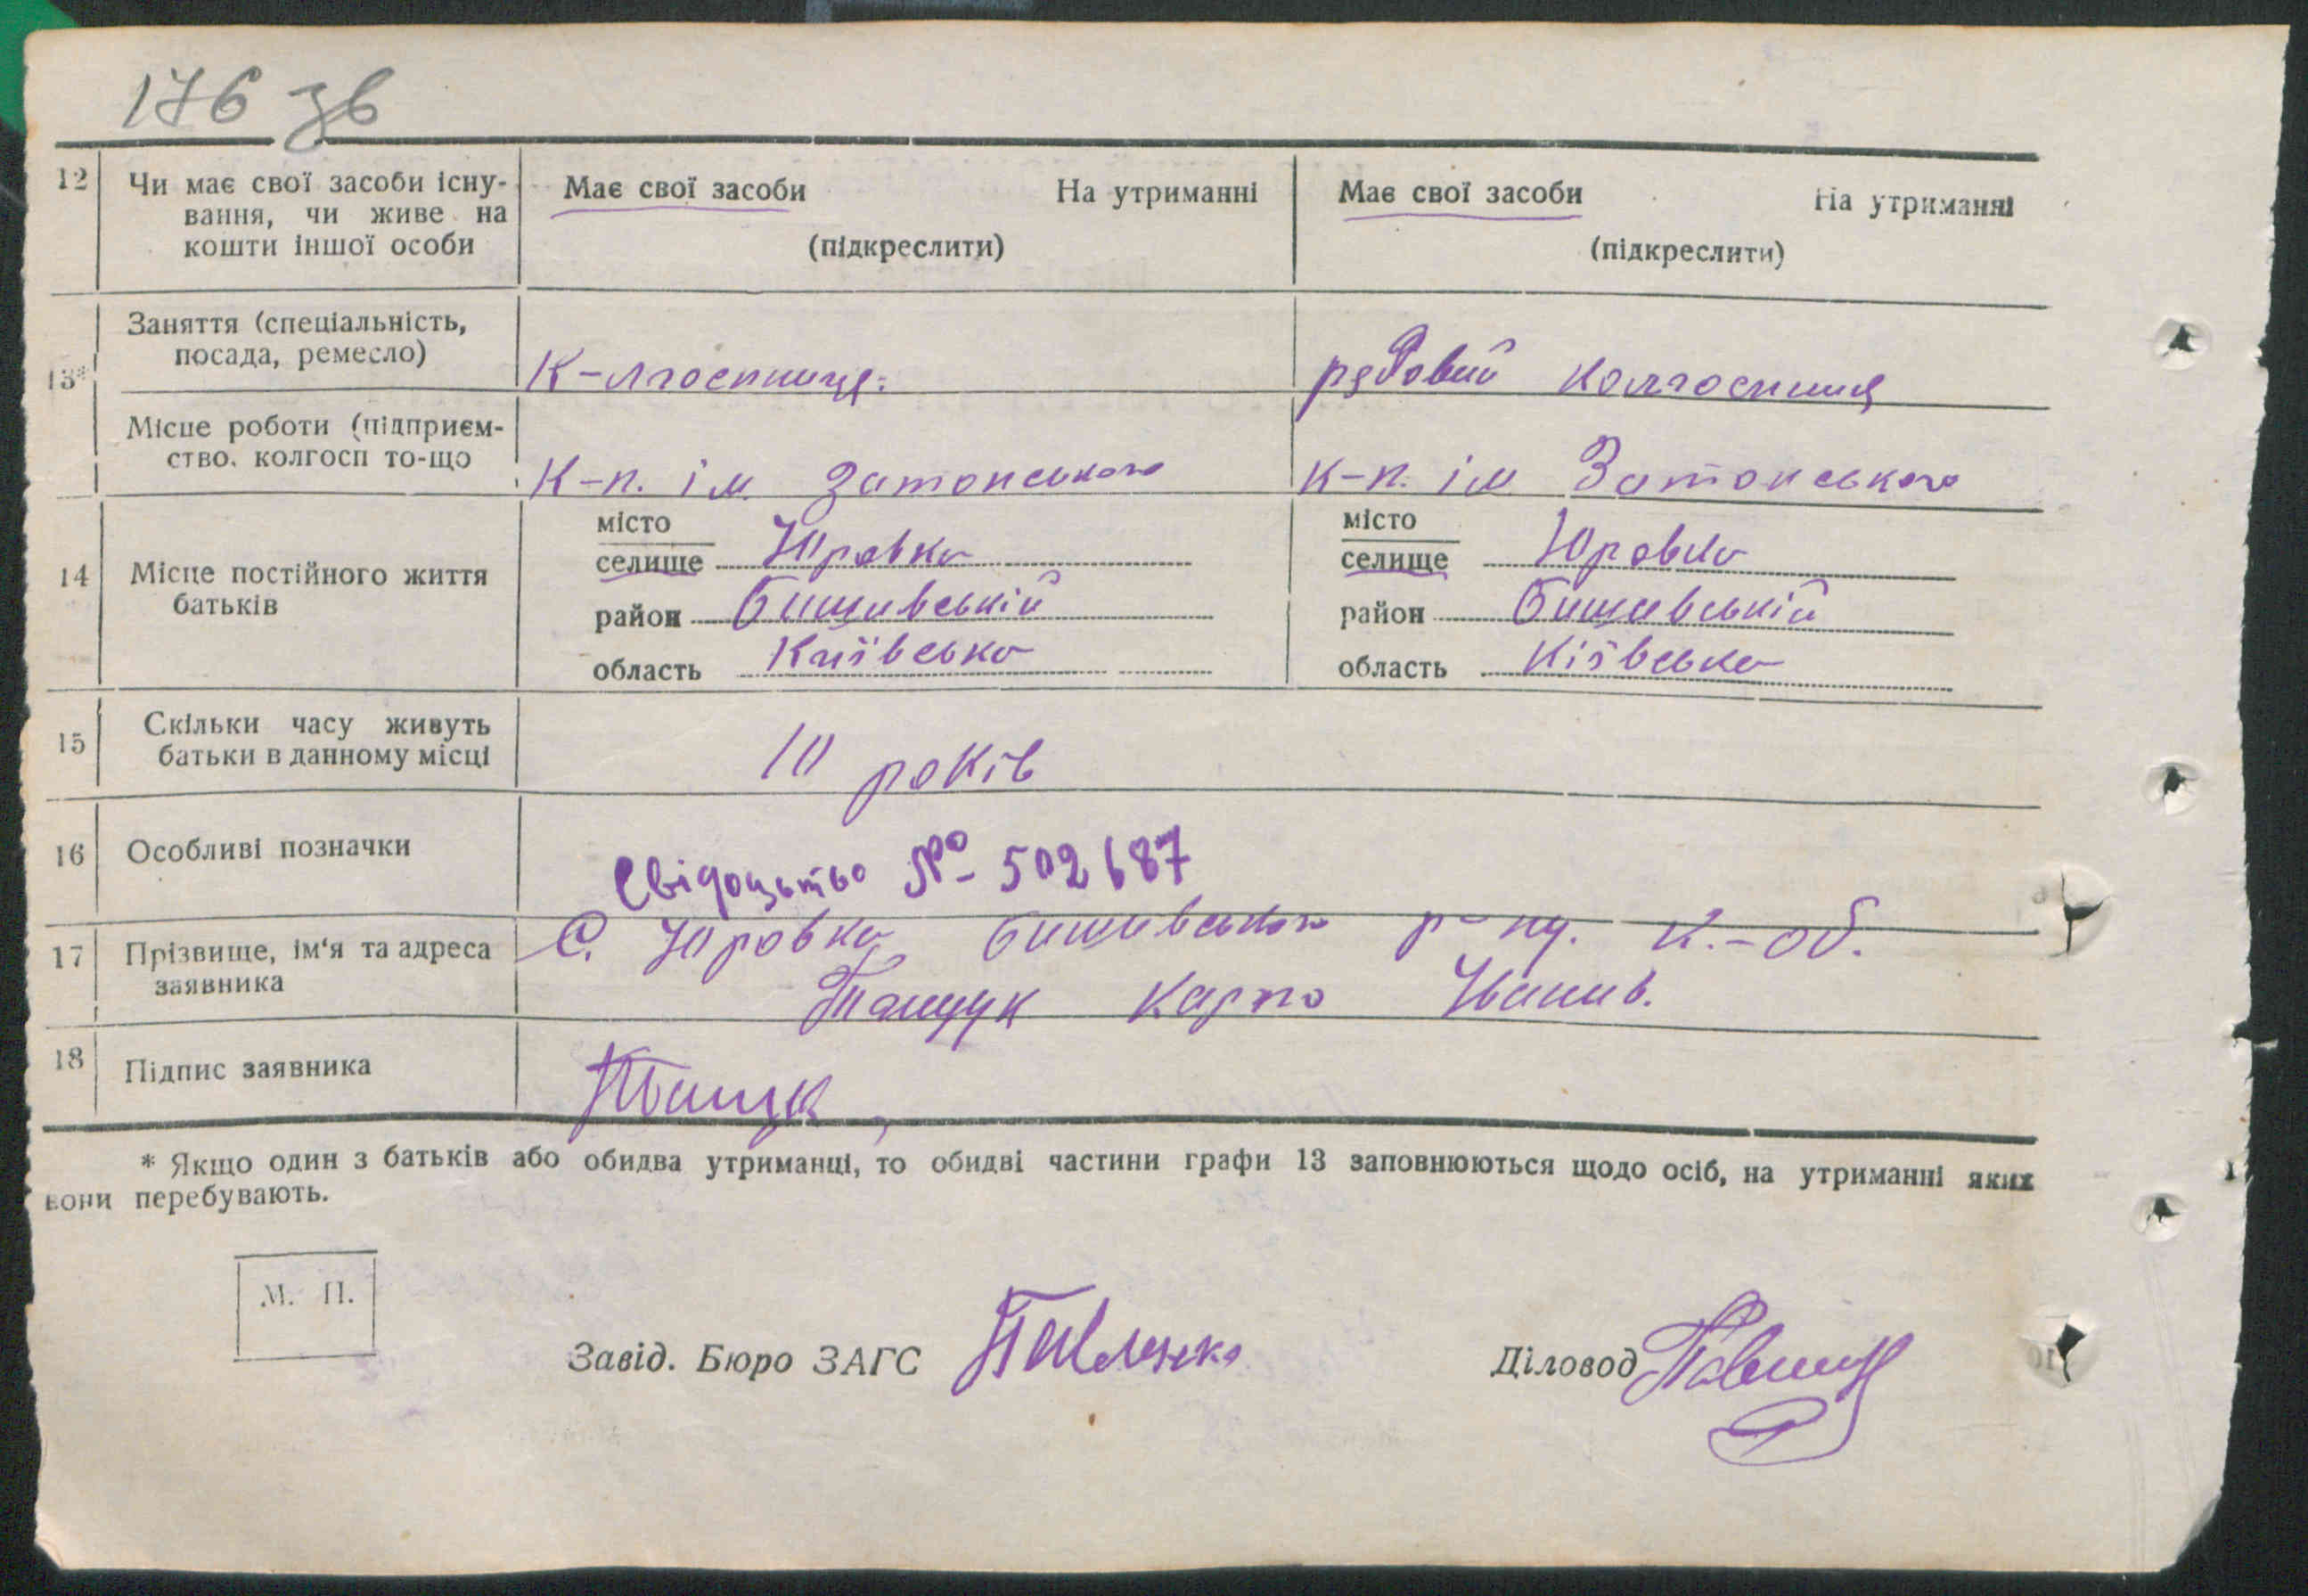 176 зв
12 Чи має свої засоби існу-
вання, чи живе на
кошти іншої особи
Має свої засоби На утриманні
(підкреслити)
Має свої засоби На утриманні
(підкреслити)
13*
Заняття (спеціальність,
посада, ремесло)
К-лгоспниця.
рядовий колгоспниц
Місце роботи (підприєм-
ство. колгосп то-що
К-п. ім. Затонського
К-п. ім Затонського
14 Місце постійного життя
батьків
місто
селище Юровка
район Бишивській
область Київська
місто
селище Юровка
район Бишивській
область Кіївська
15 Скільки часу живуть
батьки в данному місці
10 років
16 Особливі позначки
Свідоцьтво № 502687
17 Прізвище, ім'я та адреса
заявника
С. Юровка Бишивського р-ну. К.-об.
Карпо Иванив.
18 Підпис заявника
* Якщо один з батьків або обидва утриманці, то обидві частини графи 13 заповнюються щодо осіб, на утриманні яких
вони перебувають.
М. П.
Завід. Бюро ЗАГС Павленко
Діловод